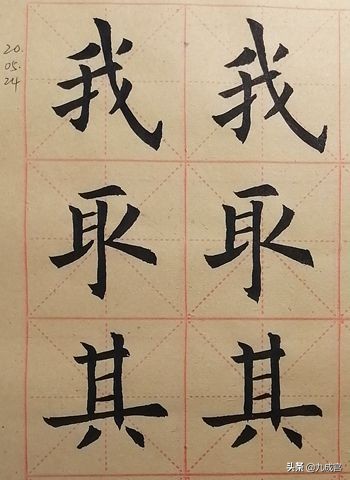 20.
05.
24
我 我
取 取
其 其
头条 @九成宫